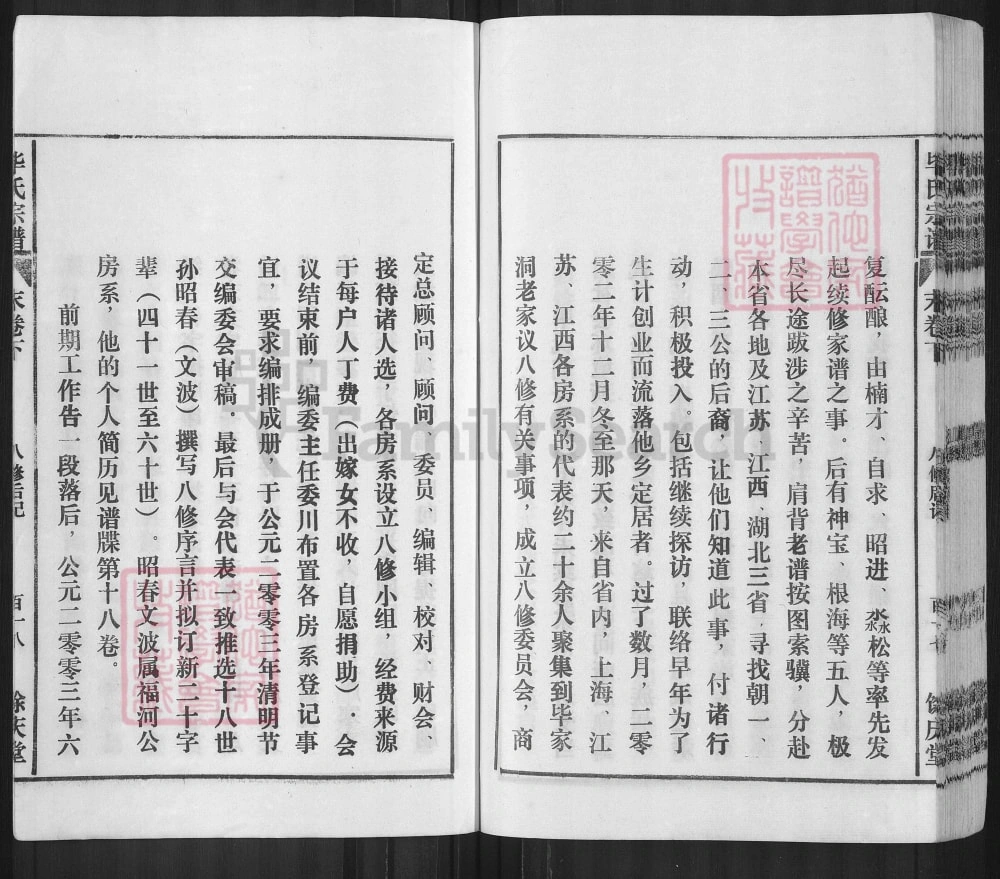 复酝酿，由楠才、自求、昭进、淼松等率先发
起续修家谱之事。后有神宝、根海等五人，极
尽长途跋涉之辛苦，肩背老谱按图索骥，分赴
本省各地及江苏、江西、湖北三省，寻找朝一、
二、三公的后裔，让他们知道此事，付诸行
动，积极投入。包括继续探访，联络早年为了
生计创业而流落他乡定居者。过了数月，二零
零二年十二月冬至那天，来自省内，上海、江
苏、江西各房系的代表约二十余人聚集到毕家
洞老家议八修有关事项，成立八修委员会，商
毕氏宗谱
末卷下
余庆堂
定总顾问、顾问、委员、编辑、校对、财会、
接待诸人选，各房系设立八修小组，经费来源
于每户人丁费（出嫁女不收，自愿捐助）．会
议结束前，编委主任委川布置各房系登记事
宜，要求编排成册，于公元二零零三年清明节
交编委会审稿．最后与会代表一致推选十八世
孙昭春（文波）撰写八修序言并拟订新二十字
辈（四十一世至六十世）。昭春文波属福河公
房系，他的个人简历见谱牒第十八卷。
前期工作告一段落后，公元二零零三年六
毕氏宗谱
末卷下
八修后记
百十八
馀庆堂
FamilySearch